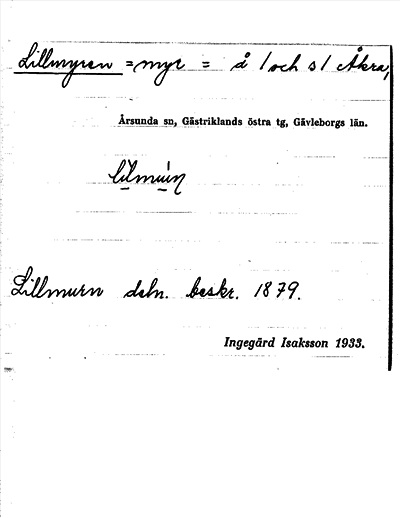 Lillmyren = myr = å / och s / Åkra,
Årsunda sn, Gästriklands östra tg, Gävleborgs län.
Lillmurn dsbn. beskr. 1879.
Ingegärd Isaksson 1933.